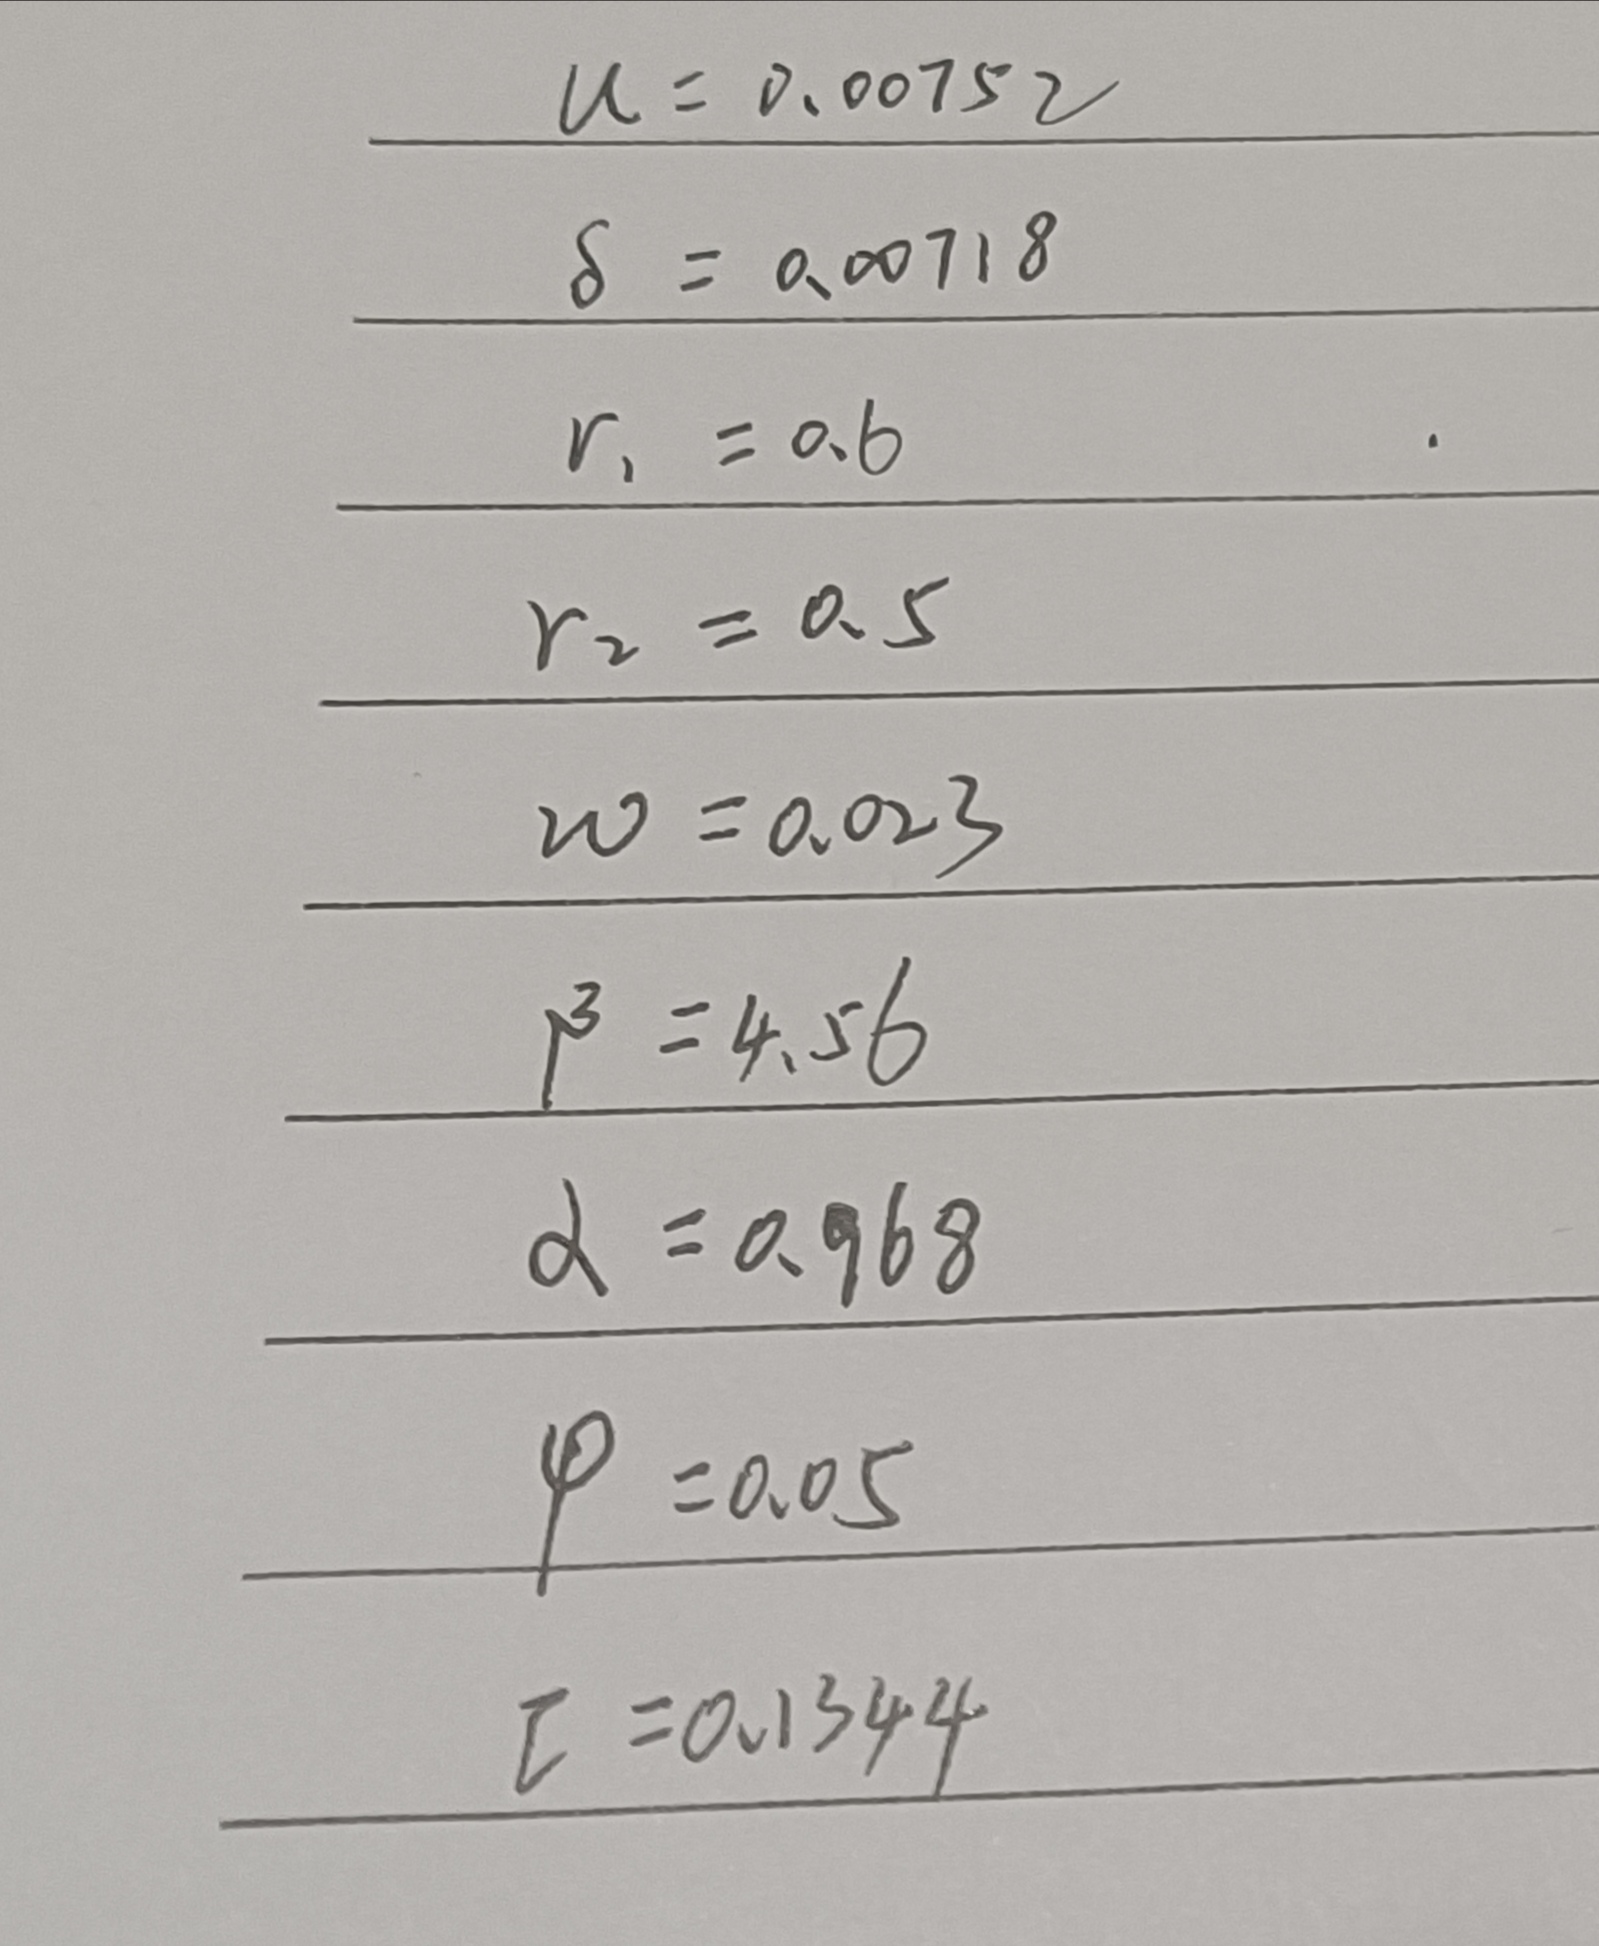 u = 0.00752
δ = 0.00718
r₁ = 0.6
r₂ = 0.5
w = 0.023
β = 4.56
α = 0.968
φ = 0.05
τ = 0.1344